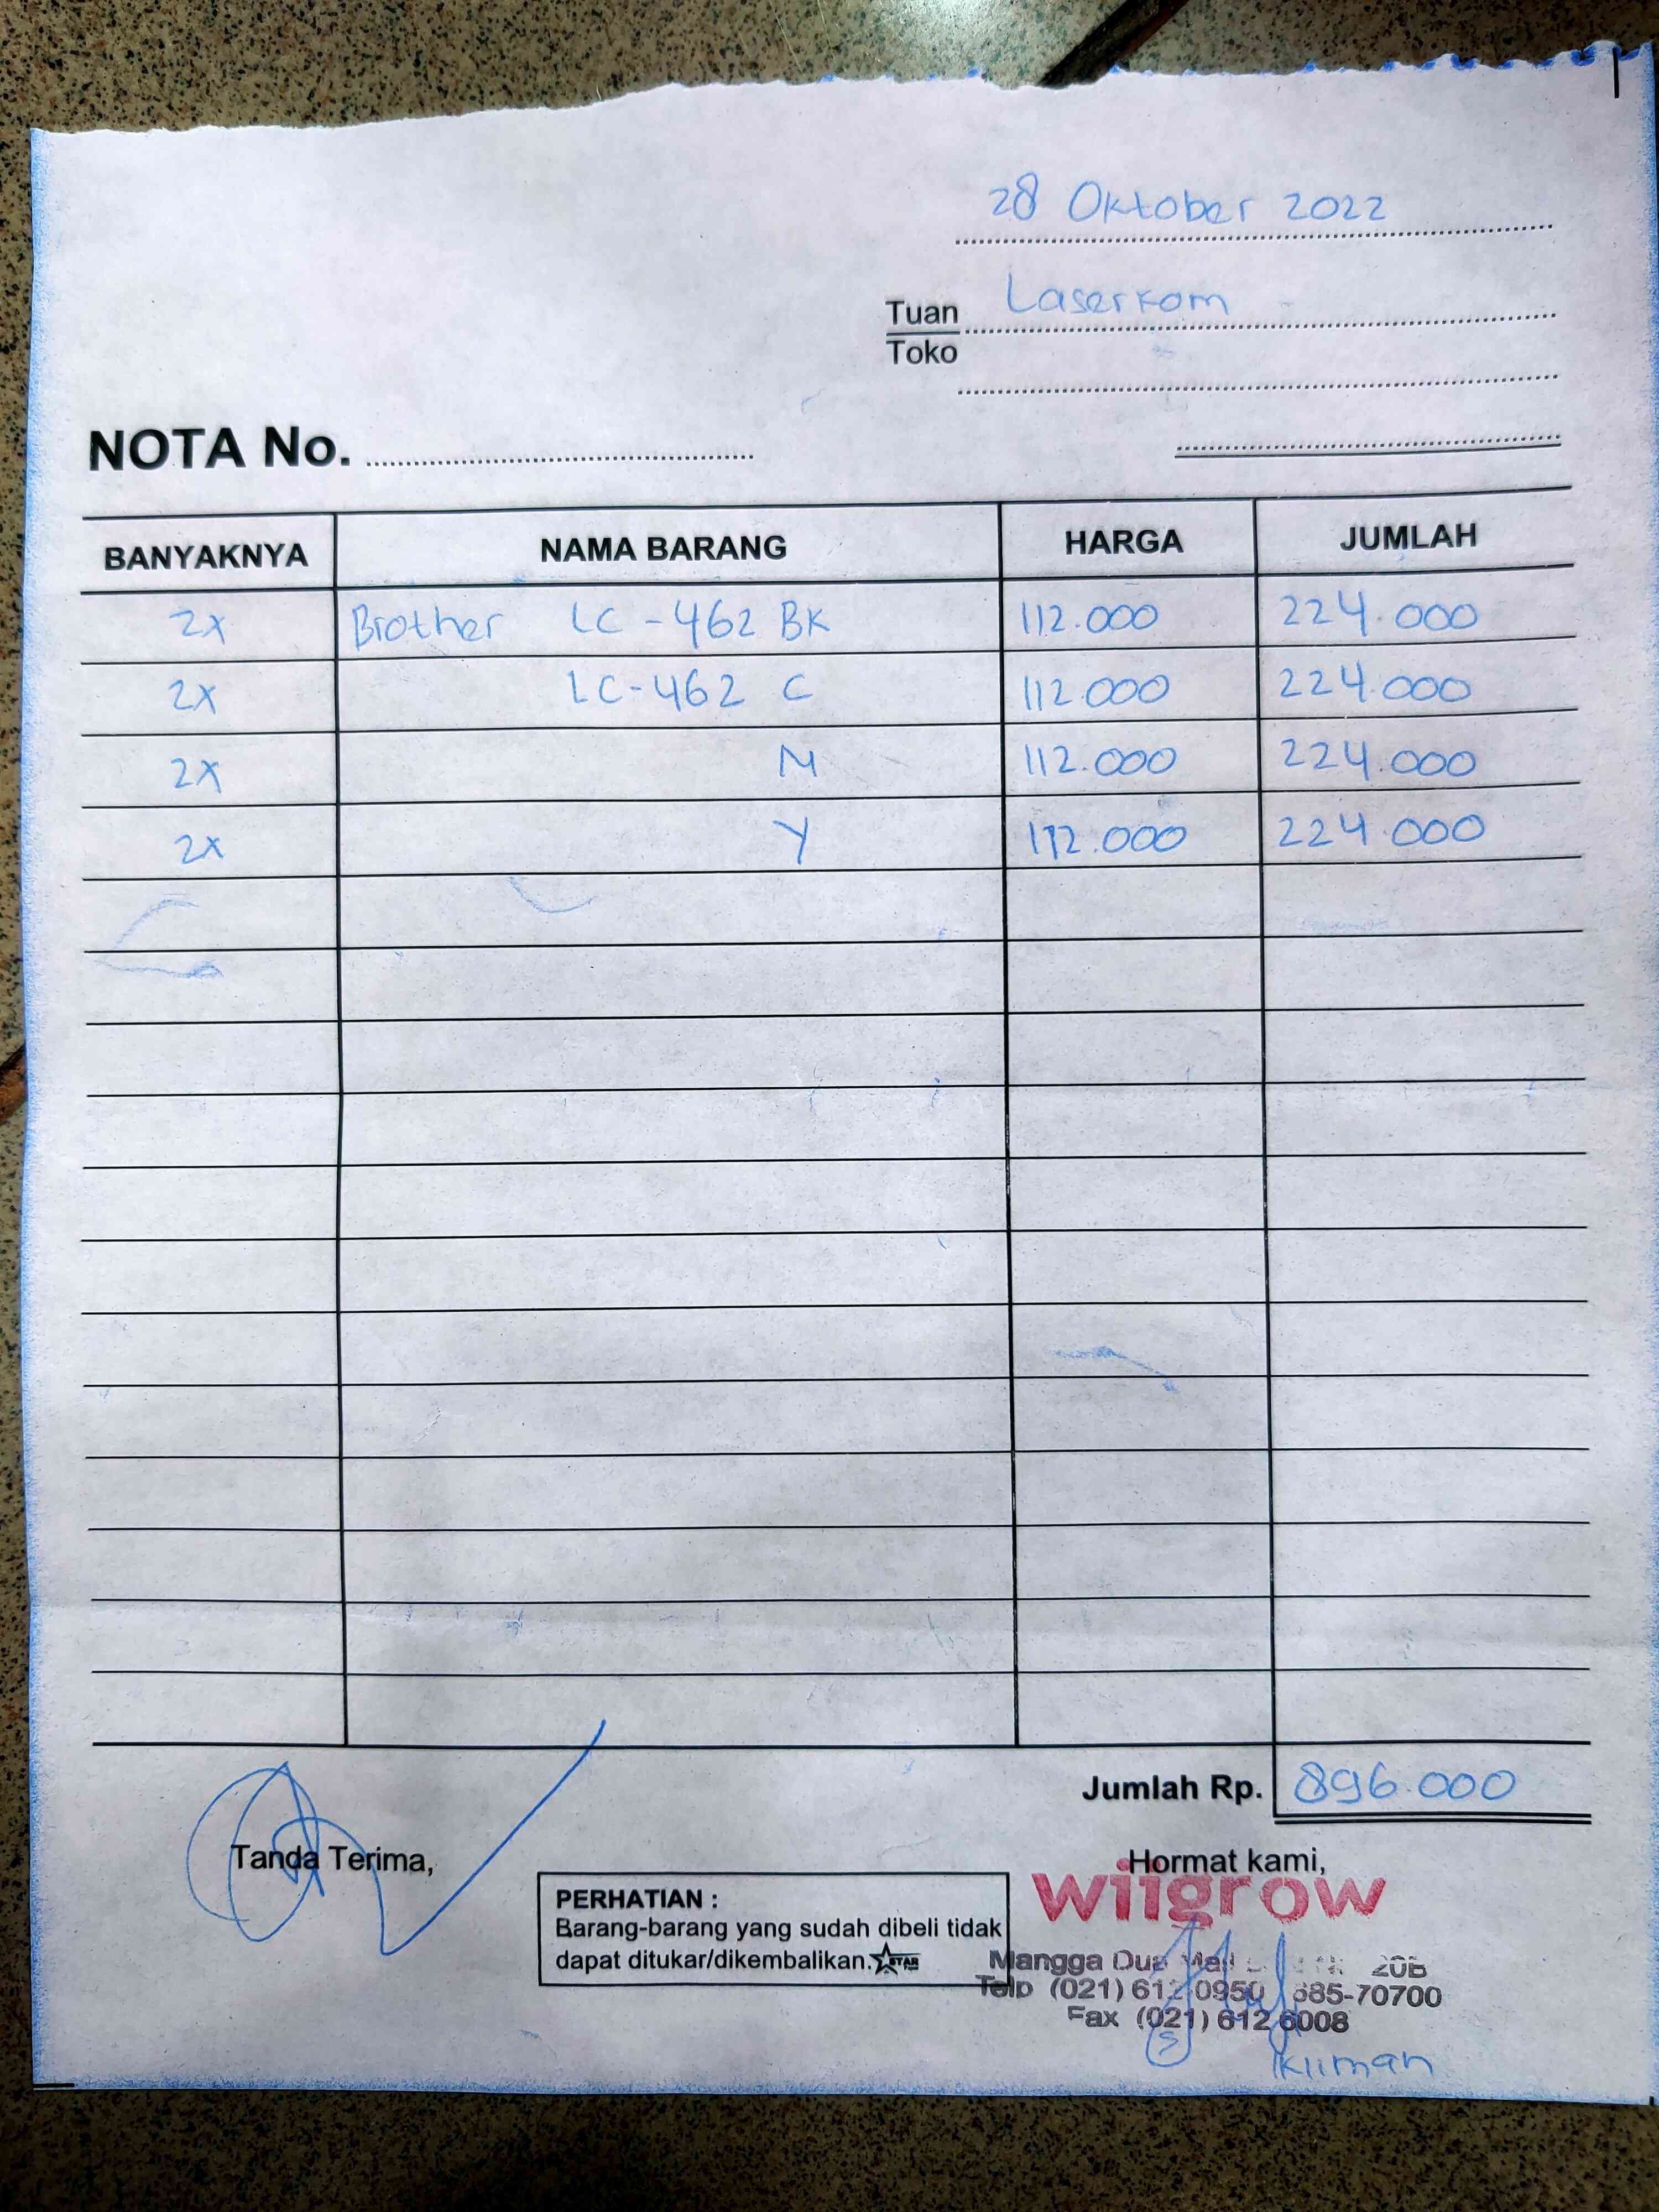 28 Oktober 2022
Tuan Laserkom
Toko
NOTA No.
BANYAKNYA NAMA BARANG HARGA JUMLAH
2x Brother LC-462 BK 112.000 224.000
2x LC-462 C 112.000 224.000
2x M 112.000 224.000
2x Y 112.000 224.000
Jumlah Rp. 896.000
Tanda Terima,
Hormat kami,
PERHATIAN :
Barang-barang yang sudah dibeli tidak
dapat ditukar/dikembalikan. STAR
wiigrow
Mangga Dua Mall 20B
Telp (021) 612-0950 685-70700
Fax (021) 612 6008